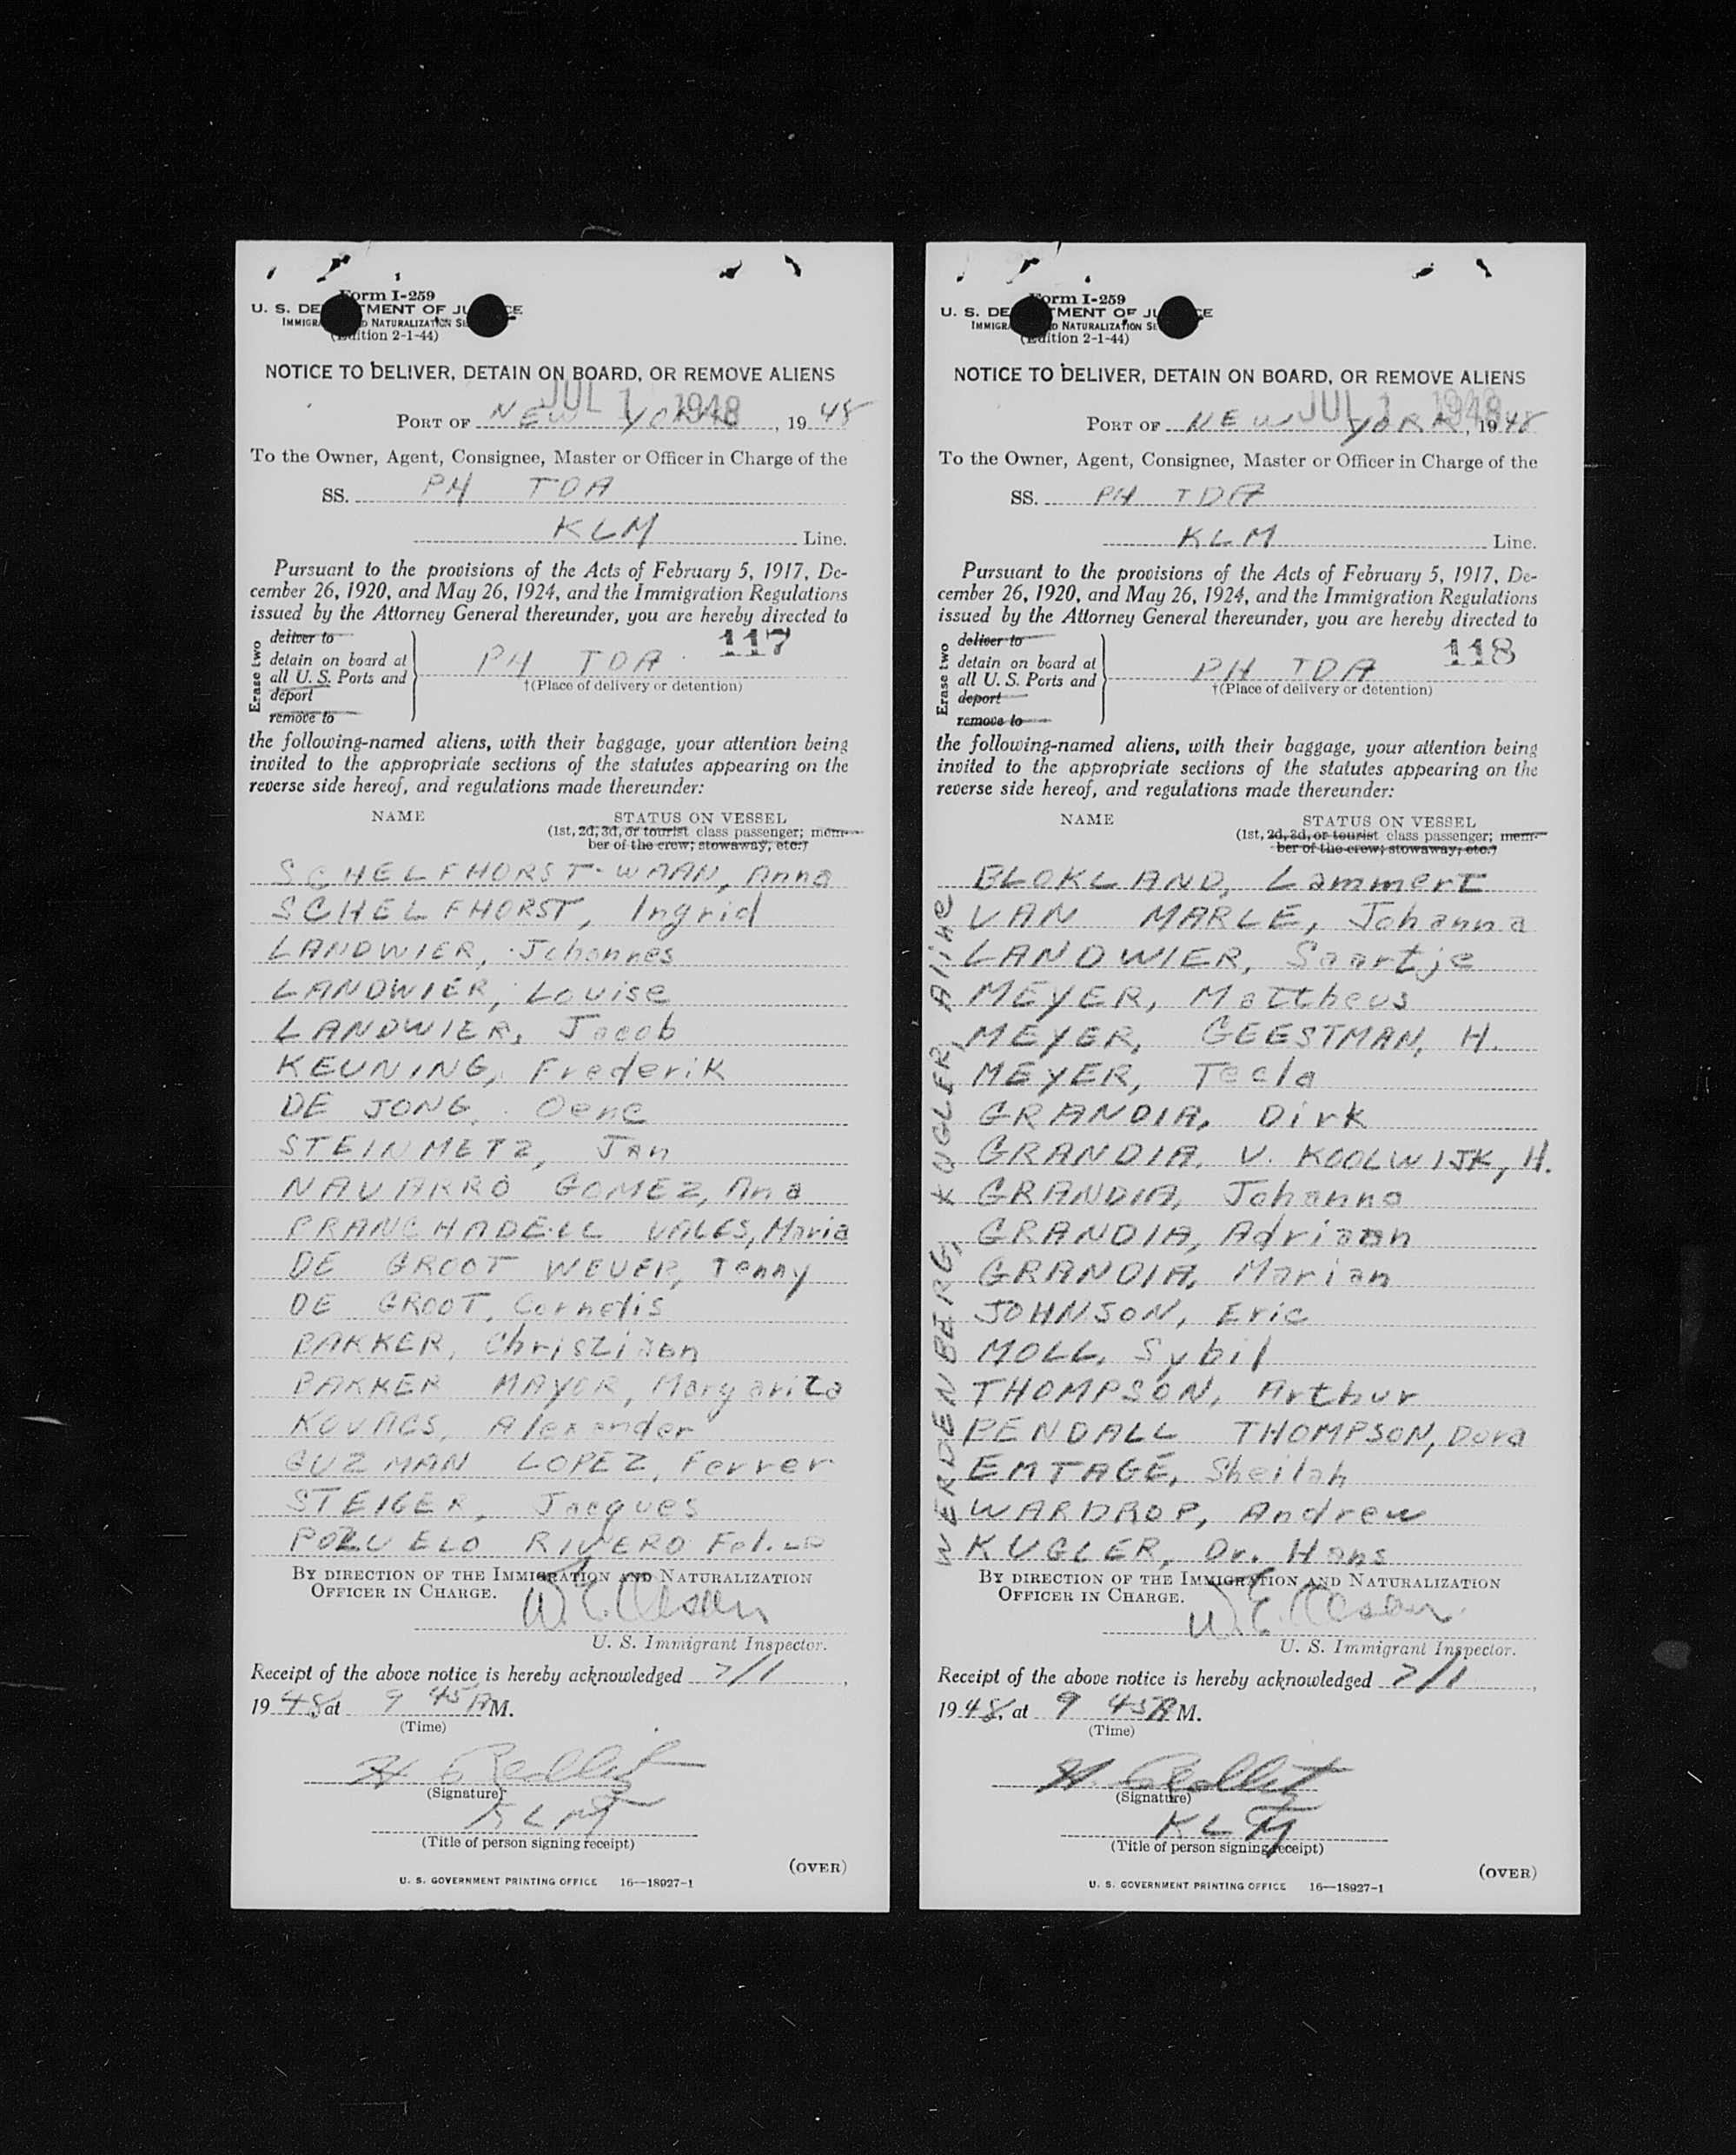 Form I-259
U. S. DE TMENT OF JU CE
IMMIGRA D NATURALIZATION SE
(Edition 2-1-44)
NOTICE TO DELIVER, DETAIN ON BOARD, OR REMOVE ALIENS
JUL 1 1948
PORT OF NEW YORK, 19 48
To the Owner, Agent, Consignee, Master or Officer in Charge of the
SS. PH TDA
KLM Line.
Pursuant to the provisions of the Acts of February 5, 1917, De-
cember 26, 1920, and May 26, 1924, and the Immigration Regulations
issued by the Attorney General thereunder, you are hereby directed to
117
Erase two
deliver to
detain on board at
all U. S. Ports and
deport
remove to
PH TDA
†(Place of delivery or detention)
the following-named aliens, with their baggage, your attention being
invited to the appropriate sections of the statutes appearing on the
reverse side hereof, and regulations made thereunder:
NAME STATUS ON VESSEL
(1st, 2d, 3d, or tourist class passenger; mem-
ber of the crew; stowaway, etc.)
SCHELFHORST-WAAN, Anna
SCHELFHORST, Ingrid
LANDWIER, Johannes
LANDWIER, Louise
LANDWIER, Jacob
KEUNING, Frederik
DE JONG, Oene
STEINMETZ, Jan
NAVARRO GOMEZ, Ana
PRANCHADELL VALES, Maria
DE GROOT WEVER, Tonny
DE GROOT, Cornelis
BAKKER, Christiaan
BAKKER MAYOR, Margarita
KOVACS, Alexander
GUZMAN LOPEZ, Ferrer
STEIGER, Jacques
POZUELO RIVERO
BY DIRECTION OF THE IMMIGRATION AND NATURALIZATION
OFFICER IN CHARGE.
W. E. Olsen
U. S. Immigrant Inspector.
Receipt of the above notice is hereby acknowledged 7/1,
19 48, at 9 45 A M.
(Time)
(Signature)
KLM
(Title of person signing receipt)
(OVER)
U. S. GOVERNMENT PRINTING OFFICE 16—18927-1
Form I-259
U. S. DE TMENT OF JU CE
IMMIGRA D NATURALIZATION SE
(Edition 2-1-44)
NOTICE TO DELIVER, DETAIN ON BOARD, OR REMOVE ALIENS
JUL 1 1948
PORT OF NEW YORK, 19 48
To the Owner, Agent, Consignee, Master or Officer in Charge of the
SS. PH TDA
KLM Line.
Pursuant to the provisions of the Acts of February 5, 1917, De-
cember 26, 1920, and May 26, 1924, and the Immigration Regulations
issued by the Attorney General thereunder, you are hereby directed to
118
Erase two
deliver to
detain on board at
all U. S. Ports and
deport
remove to
PH TDA
†(Place of delivery or detention)
the following-named aliens, with their baggage, your attention being
invited to the appropriate sections of the statutes appearing on the
reverse side hereof, and regulations made thereunder:
NAME STATUS ON VESSEL
(1st, 2d, 3d, or tourist class passenger; mem-
ber of the crew; stowaway, etc.)
BLOKLAND, Lammert
VAN MARLE, Johanna
LANDWIER, Saartje
MEYER, Mattheus
MEYER, GEESTMAN, H.
MEYER, Tecla
GRANDIA, Dirk
GRANDIA, V. KOOLWIJK, H.
GRANDIA, Johanna
GRANDIA, Adriaan
GRANDIA, Marian
JOHNSON, Eric
MOLL, Sybil
THOMPSON, Arthur
PENDALL THOMPSON, Dora
EMTAGE, Sheilah
WARDROP, Andrew
KUGLER, Dr. Hans
WERDENBERG, KUGLER, Aline
BY DIRECTION OF THE IMMIGRATION AND NATURALIZATION
OFFICER IN CHARGE.
W. E. Olsen
U. S. Immigrant Inspector.
Receipt of the above notice is hereby acknowledged 7/1,
19 48, at 9 45 A M.
(Time)
(Signature)
KLM
(Title of person signing receipt)
(OVER)
U. S. GOVERNMENT PRINTING OFFICE 16—18927-1